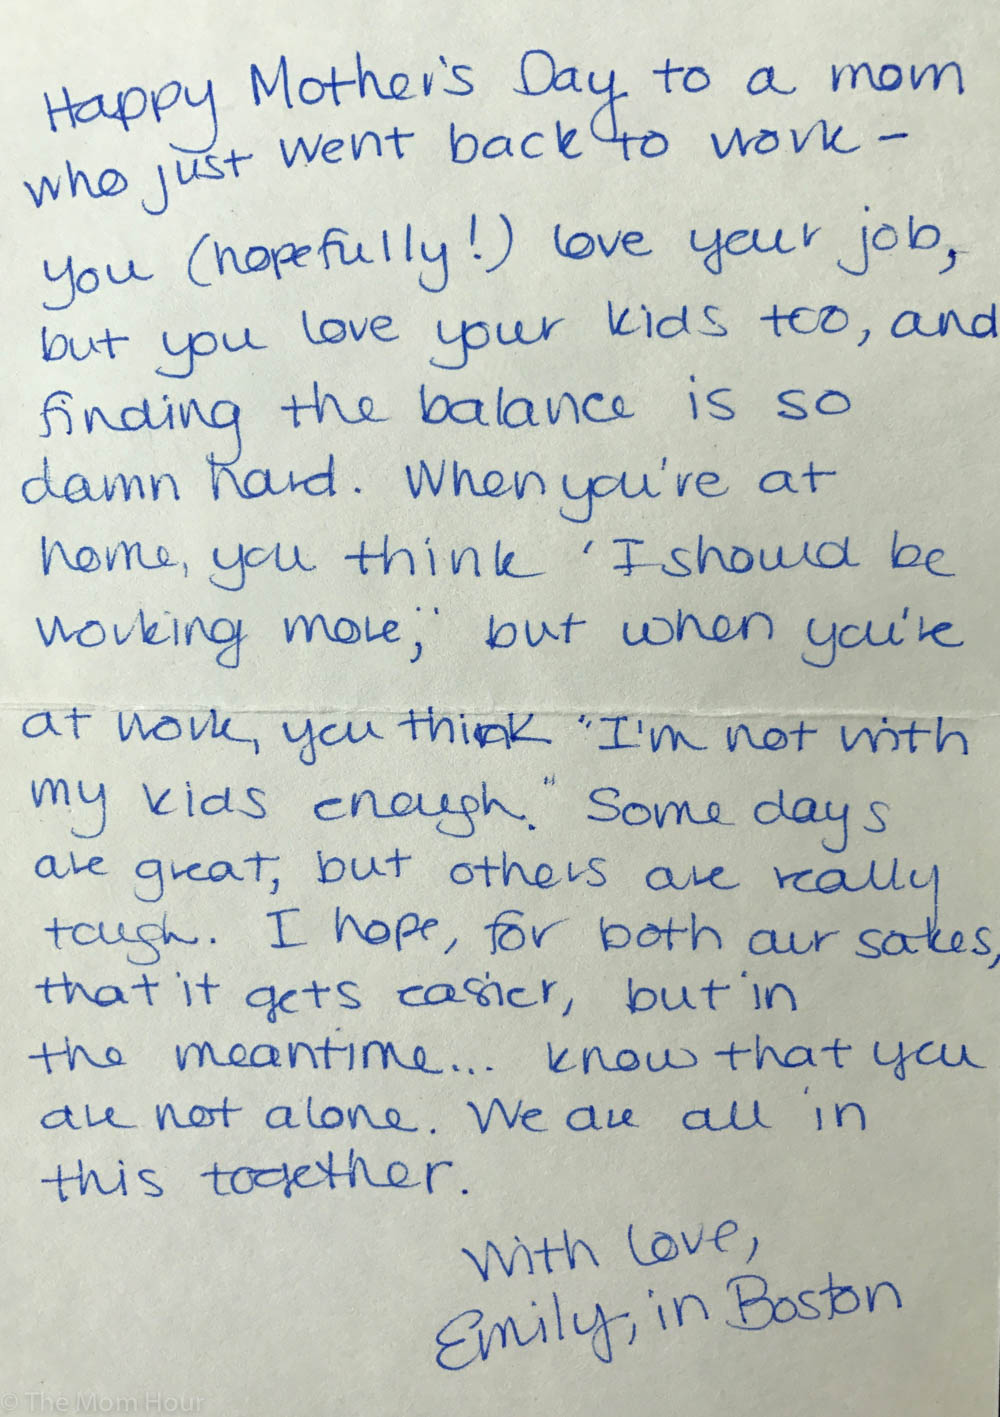 Happy Mother's Day to a mom
who just went back to work -
you (hopefully!) love your job,
but you love your kids too, and
finding the balance is so
damn hard. When you're at
home, you think 'I should be
working more,' but when you're
at work, you think "I'm not with
my kids enough." Some days
are great, but others are really
tough. I hope, for both our sakes,
that it gets easier, but in
the meantime... know that you
are not alone. We are all in
this together.
With love,
Emily, in Boston
© The Mom Hour